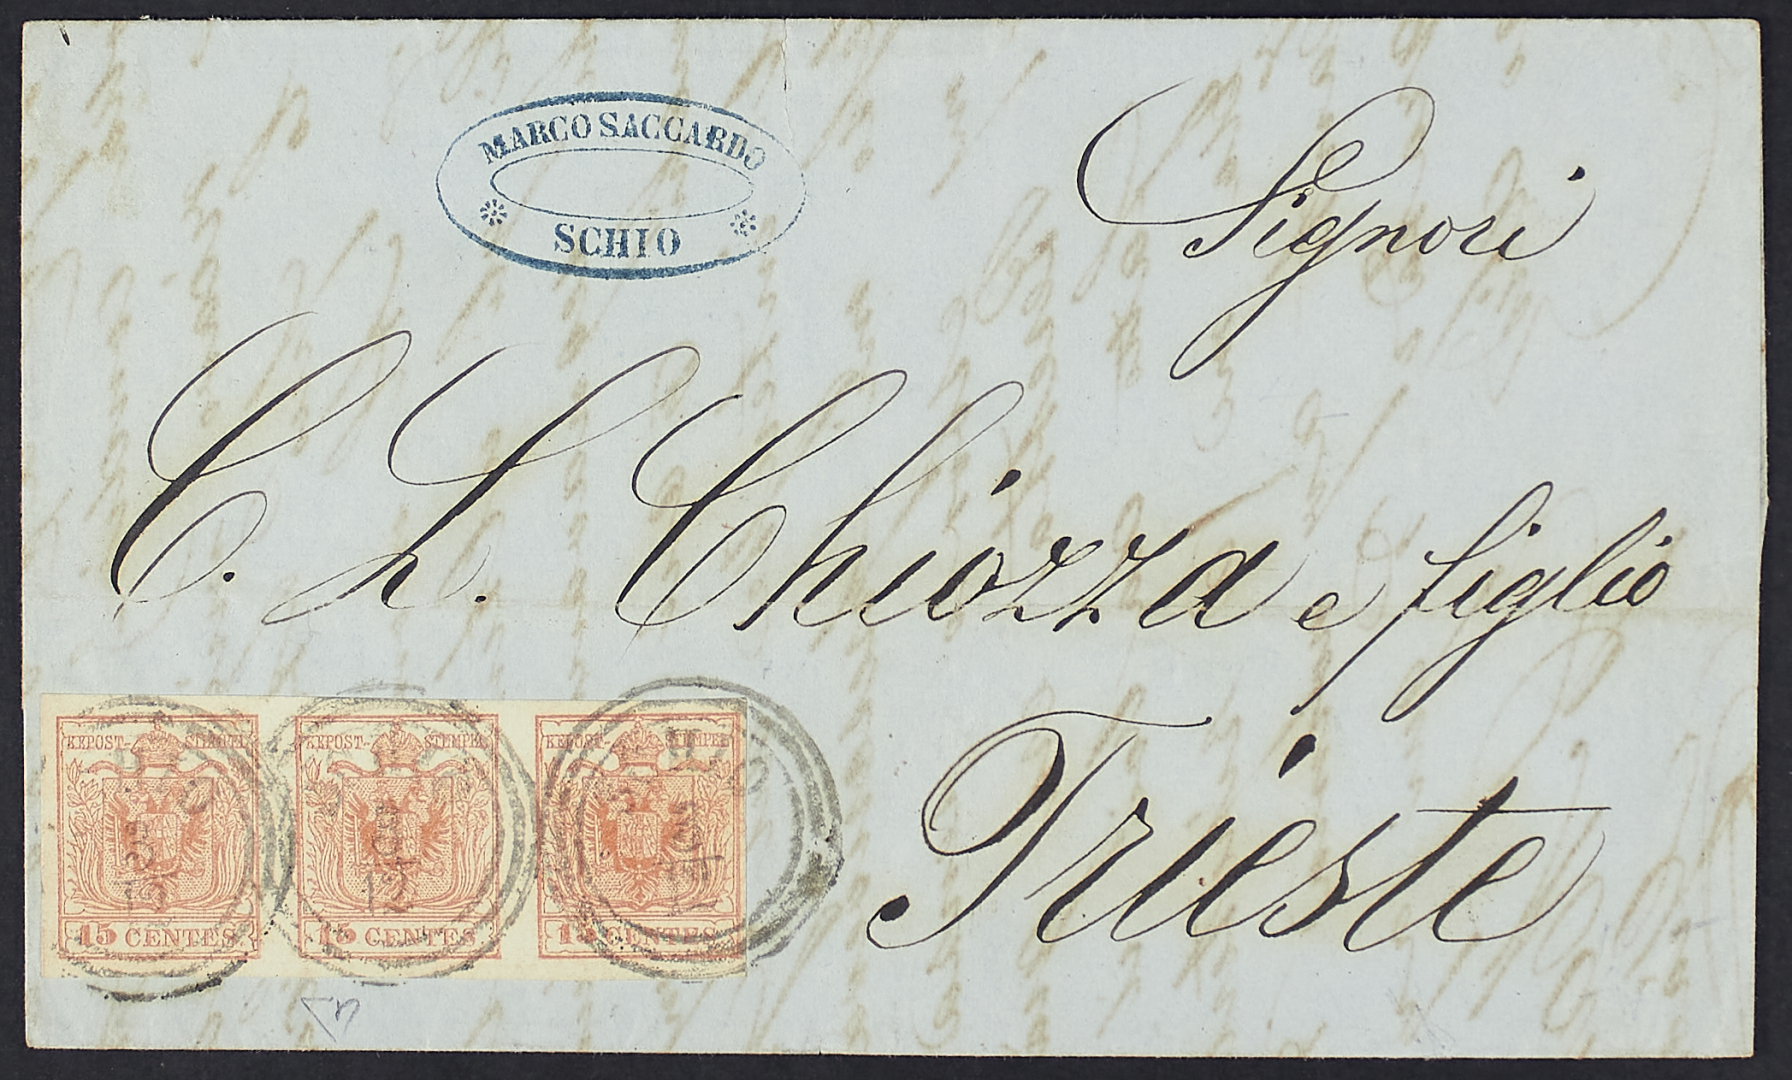 MARCO SACCARDO
SCHIO
Signori
C. L. Chiozza e figlio
Trieste
KEPOST- STEMPEL
KEPOST- STEMPEL
KEPOST- STEMPEL
15 CENTES.
15 CENTES.
15 CENTES.